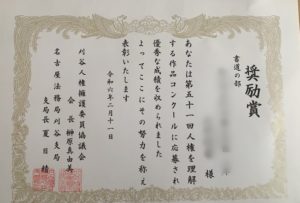 奨励賞
書道の部
様
あなたは第五十一回人権を理解
する作品コンクールに応募され
優秀な成績を収められました
よってここにその努力を称え
表彰いたします
令和六年二月十一日
刈谷人権擁護委員協議会
会長 榊原真由美
名古屋法務局刈谷支局
支局長 夏目